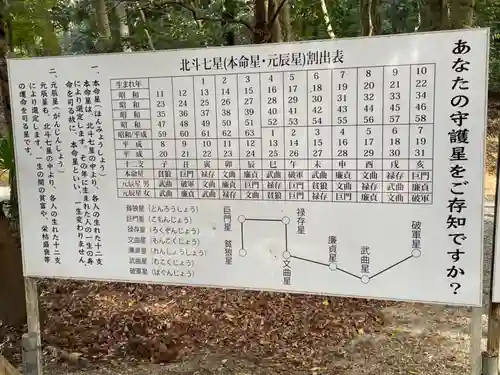 あなたの守護星をご存知ですか?
北斗七星(本命星・元辰星)割出表
生まれ年 1 2 3 4 5 6 7 8 9 10
昭和 11 12 13 14 15 16 17 18 19 20 21 22
昭和 23 24 25 26 27 28 29 30 31 32 33 34
昭和 35 36 37 38 39 40 41 42 43 44 45 46
昭和 47 48 49 50 51 52 53 54 55 56 57 58
昭和/平成 59 60 61 62 63 1 2 3 4 5 6 7
平成 8 9 10 11 12 13 14 15 16 17 18 19
平成 20 21 22 23 24 25 26 27 28 29 30 31
十二支 子 丑 寅 卯 辰 巳 午 未 申 酉 戌 亥
本命星 貪狼 巨門 禄存 文曲 廉貞 武曲 破軍 武曲 廉貞 文曲 禄存 巨門
元辰星 男
元辰星 女
貪狼星(とんろうしょう)
巨門星(こもんじょう)
禄存星(ろくぞんじょう)
文曲星(もんこくじょう)
廉貞星(れんじょうじょう)
武曲星(むこくじょう)
破軍星(はぐんじょう)
貪狼星
巨門星
禄存星
文曲星
廉貞星
武曲星
破軍星
一、本命星(ほんみょうしょう)
本命星は、北斗七星の中より、各人の生れた十二支
により選定します。その年に生まれた人の一生の寿
命を司る故に、本命星といい、一生変わりません。
二、元辰星(がんじんしょう)
元辰星も、北斗七星の中より、各人の生れた十二支
により選定します。一生の間の貧富や、栄枯盛衰
の運を司る星です。